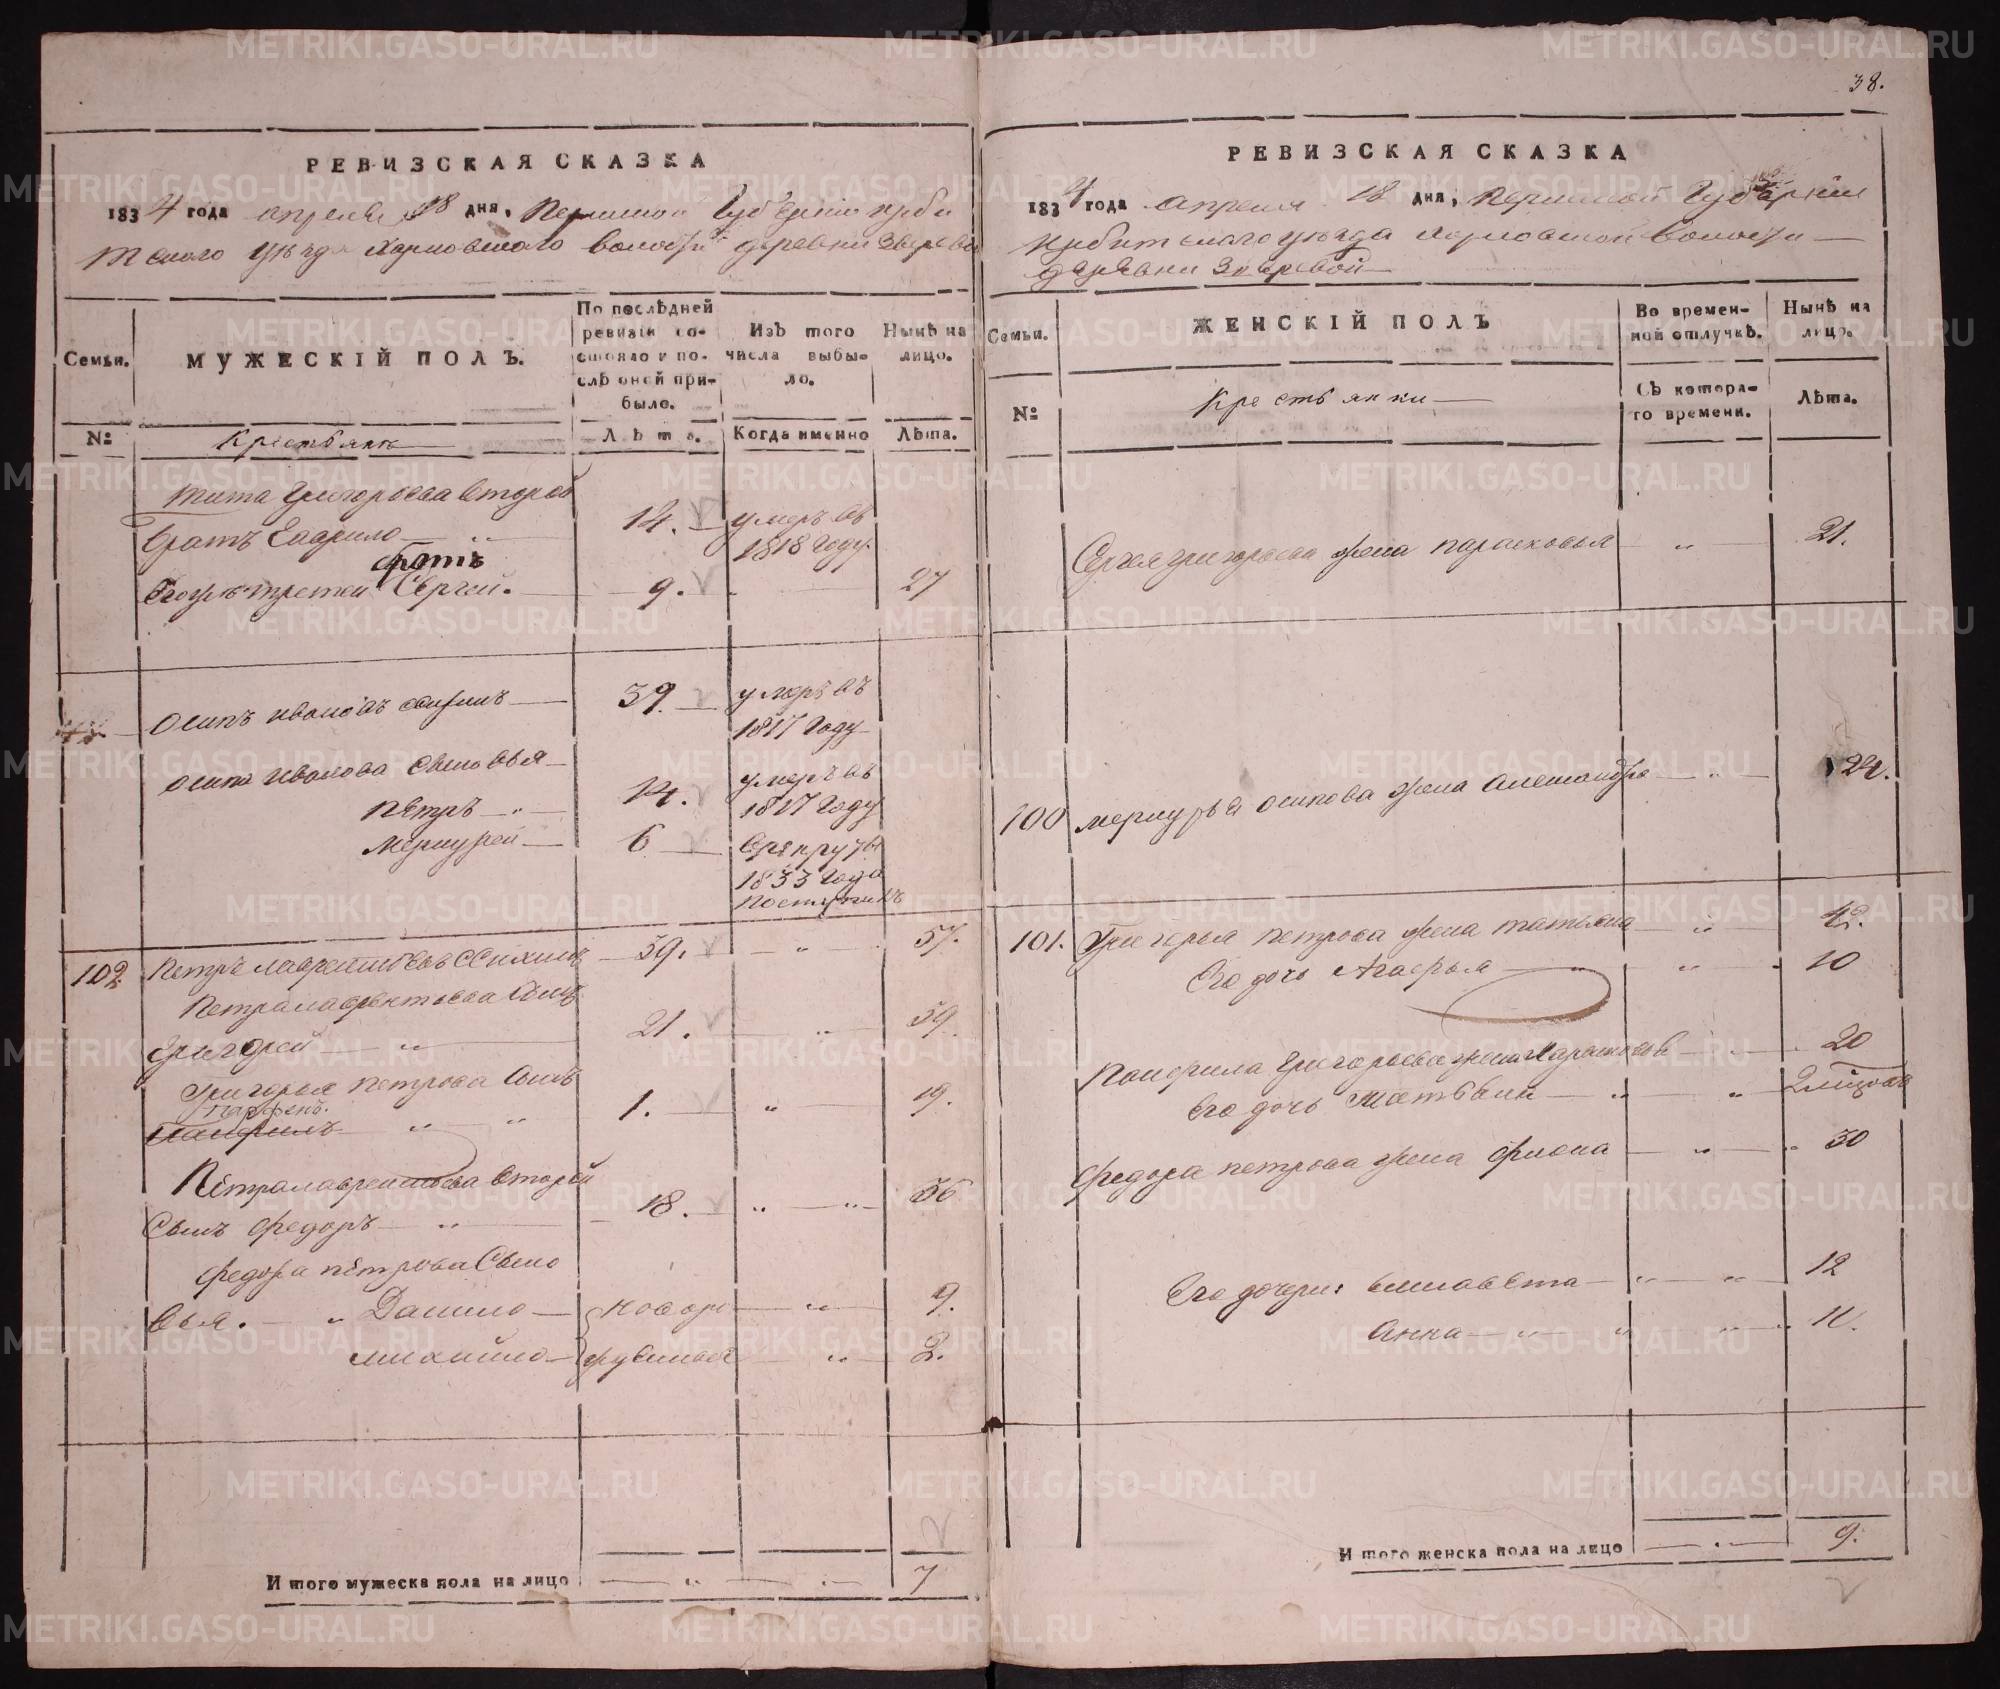 38.
РЕВИЗСКАЯ СКАЗКА
1834 года апреля 18 дня, Пермской Губернiи Ирби
тскаго уѣзда Харловской волости деревни Зверевой
Семьи.
МУЖЕСКІЙ ПОЛЪ.
По послѣдней ревизіи состояло и послѣ оней прибыло.
Изъ того числа выбыло.
Нынѣ на лицо.
№
Крестьянѣ
Лѣта.
Когда именно
Лѣта.
Тита Григорьева второй
братъ Гаврило 14. умеръ въ
1818 Году.
братъ
Его же третей Сергей. 9. 27
Осипъ Ивановъ 39. умеръ въ
1817 Году
Осипа Иванова Сыновья
Петръ 14. умеръ въ
1817 Году
Меркурей 6 В рекруты
1833 Года
поступилъ
102. Петръ Лаврентьевъ 39. 57.
Петра Лаврентьева Сынъ
Григорей 21. 39.
Григорья Петрова Сынъ
Парфенъ.
Панфилъ 1. 19.
Петра Лаврентьева второй
Сынъ Федоръ 18. 36
Федора Петрова Сыно
вья. Данило новоро 9.
Михайло жденные 2.
Итого мужеска пола на лицо 7
РЕВИЗСКАЯ СКАЗКА
1834 года апреля 18 дня, Пермской Губернiи
Ирбитскаго уѣзда Харловской волости
деревни Зверевой
Семьи.
ЖЕНСКІЙ ПОЛЪ
Во временной отлучкѣ.
Нынѣ на лицо.
№
Крестьянки
Съ котораго времени.
Лѣта.
Сергея Григорьева жена Парасковья 21.
100 Меркурья Осипова жена Александра 24.
101. Григорья Петрова жена Татьяна 42.
Его дочь Агафья 10
Панфила Григорьева жена Парасковья 20
Его дочь
Федора Петрова жена 30
Его дочери: Елисавета 12
Анна 11.
Итого женска пола на лицо 9.
METRIKI.GASO-URAL.RU